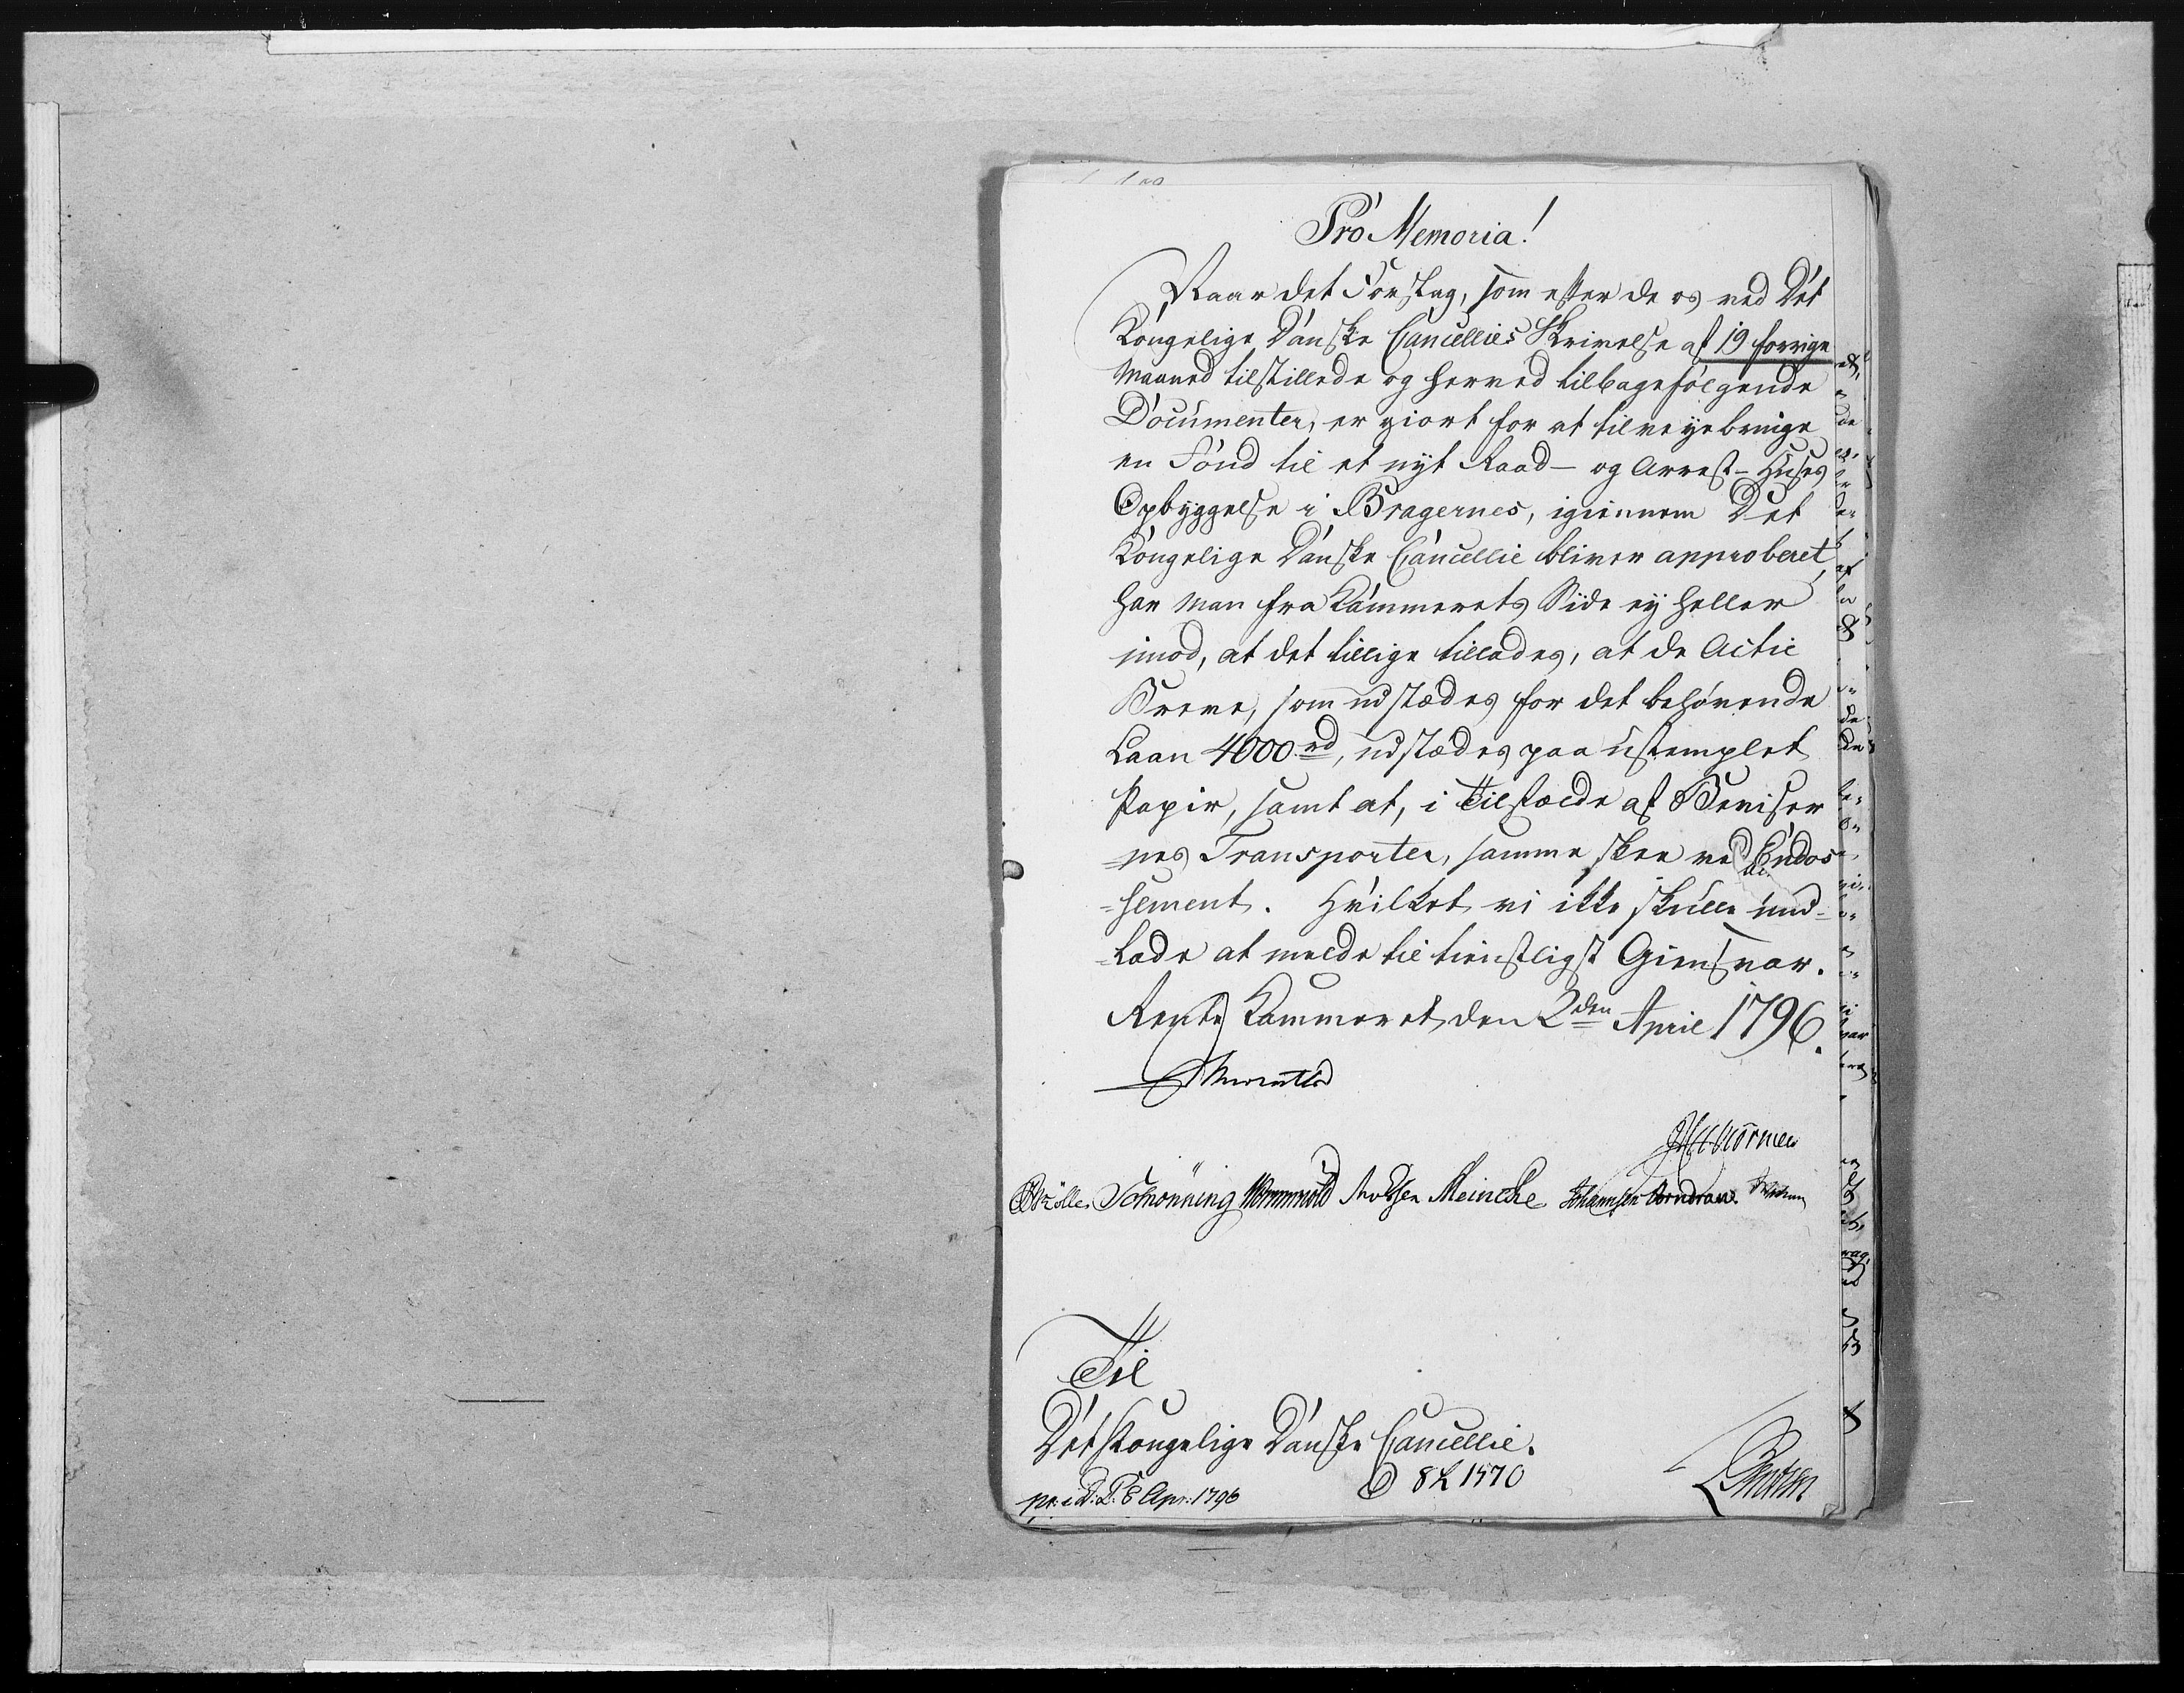 Pro Memoria!
Naar det Forslag, som efter de os ved Det
Kongelige Danske Cancellies Skrivelse af 19 forrige
Maaned tilstillede og herved tilbagefølgende
Documenter, er giort for at tilveyebringe
en Fond til et nyt Raad- og Arrest-Huses
Opbyggelse i Bragernes, igiennem Det
Kongelige Danske Cancellie bliver approberet,
har man fra Kammerets Side ey heller
imod, at det tillige tillades, at de Actie
Breve, som udstædes for det behøvende
Laan 4000 rd, udstædes paa ustemplet
Papir, samt at, i Tilfælde af Beviser
=nes Transporter, samme skee ved Endos
=sement. Hvilket vi ikke skulle und=
=lade at melde til tienstligst Giensvar.
Rente Kammeret, den 2den April 1796.
Schönning Wormskiold Meincke Johannsen Arndrau
Til
Det Kongelige Danske Cancellie.
pr: i d: D: 8 Apr: 1796
1570